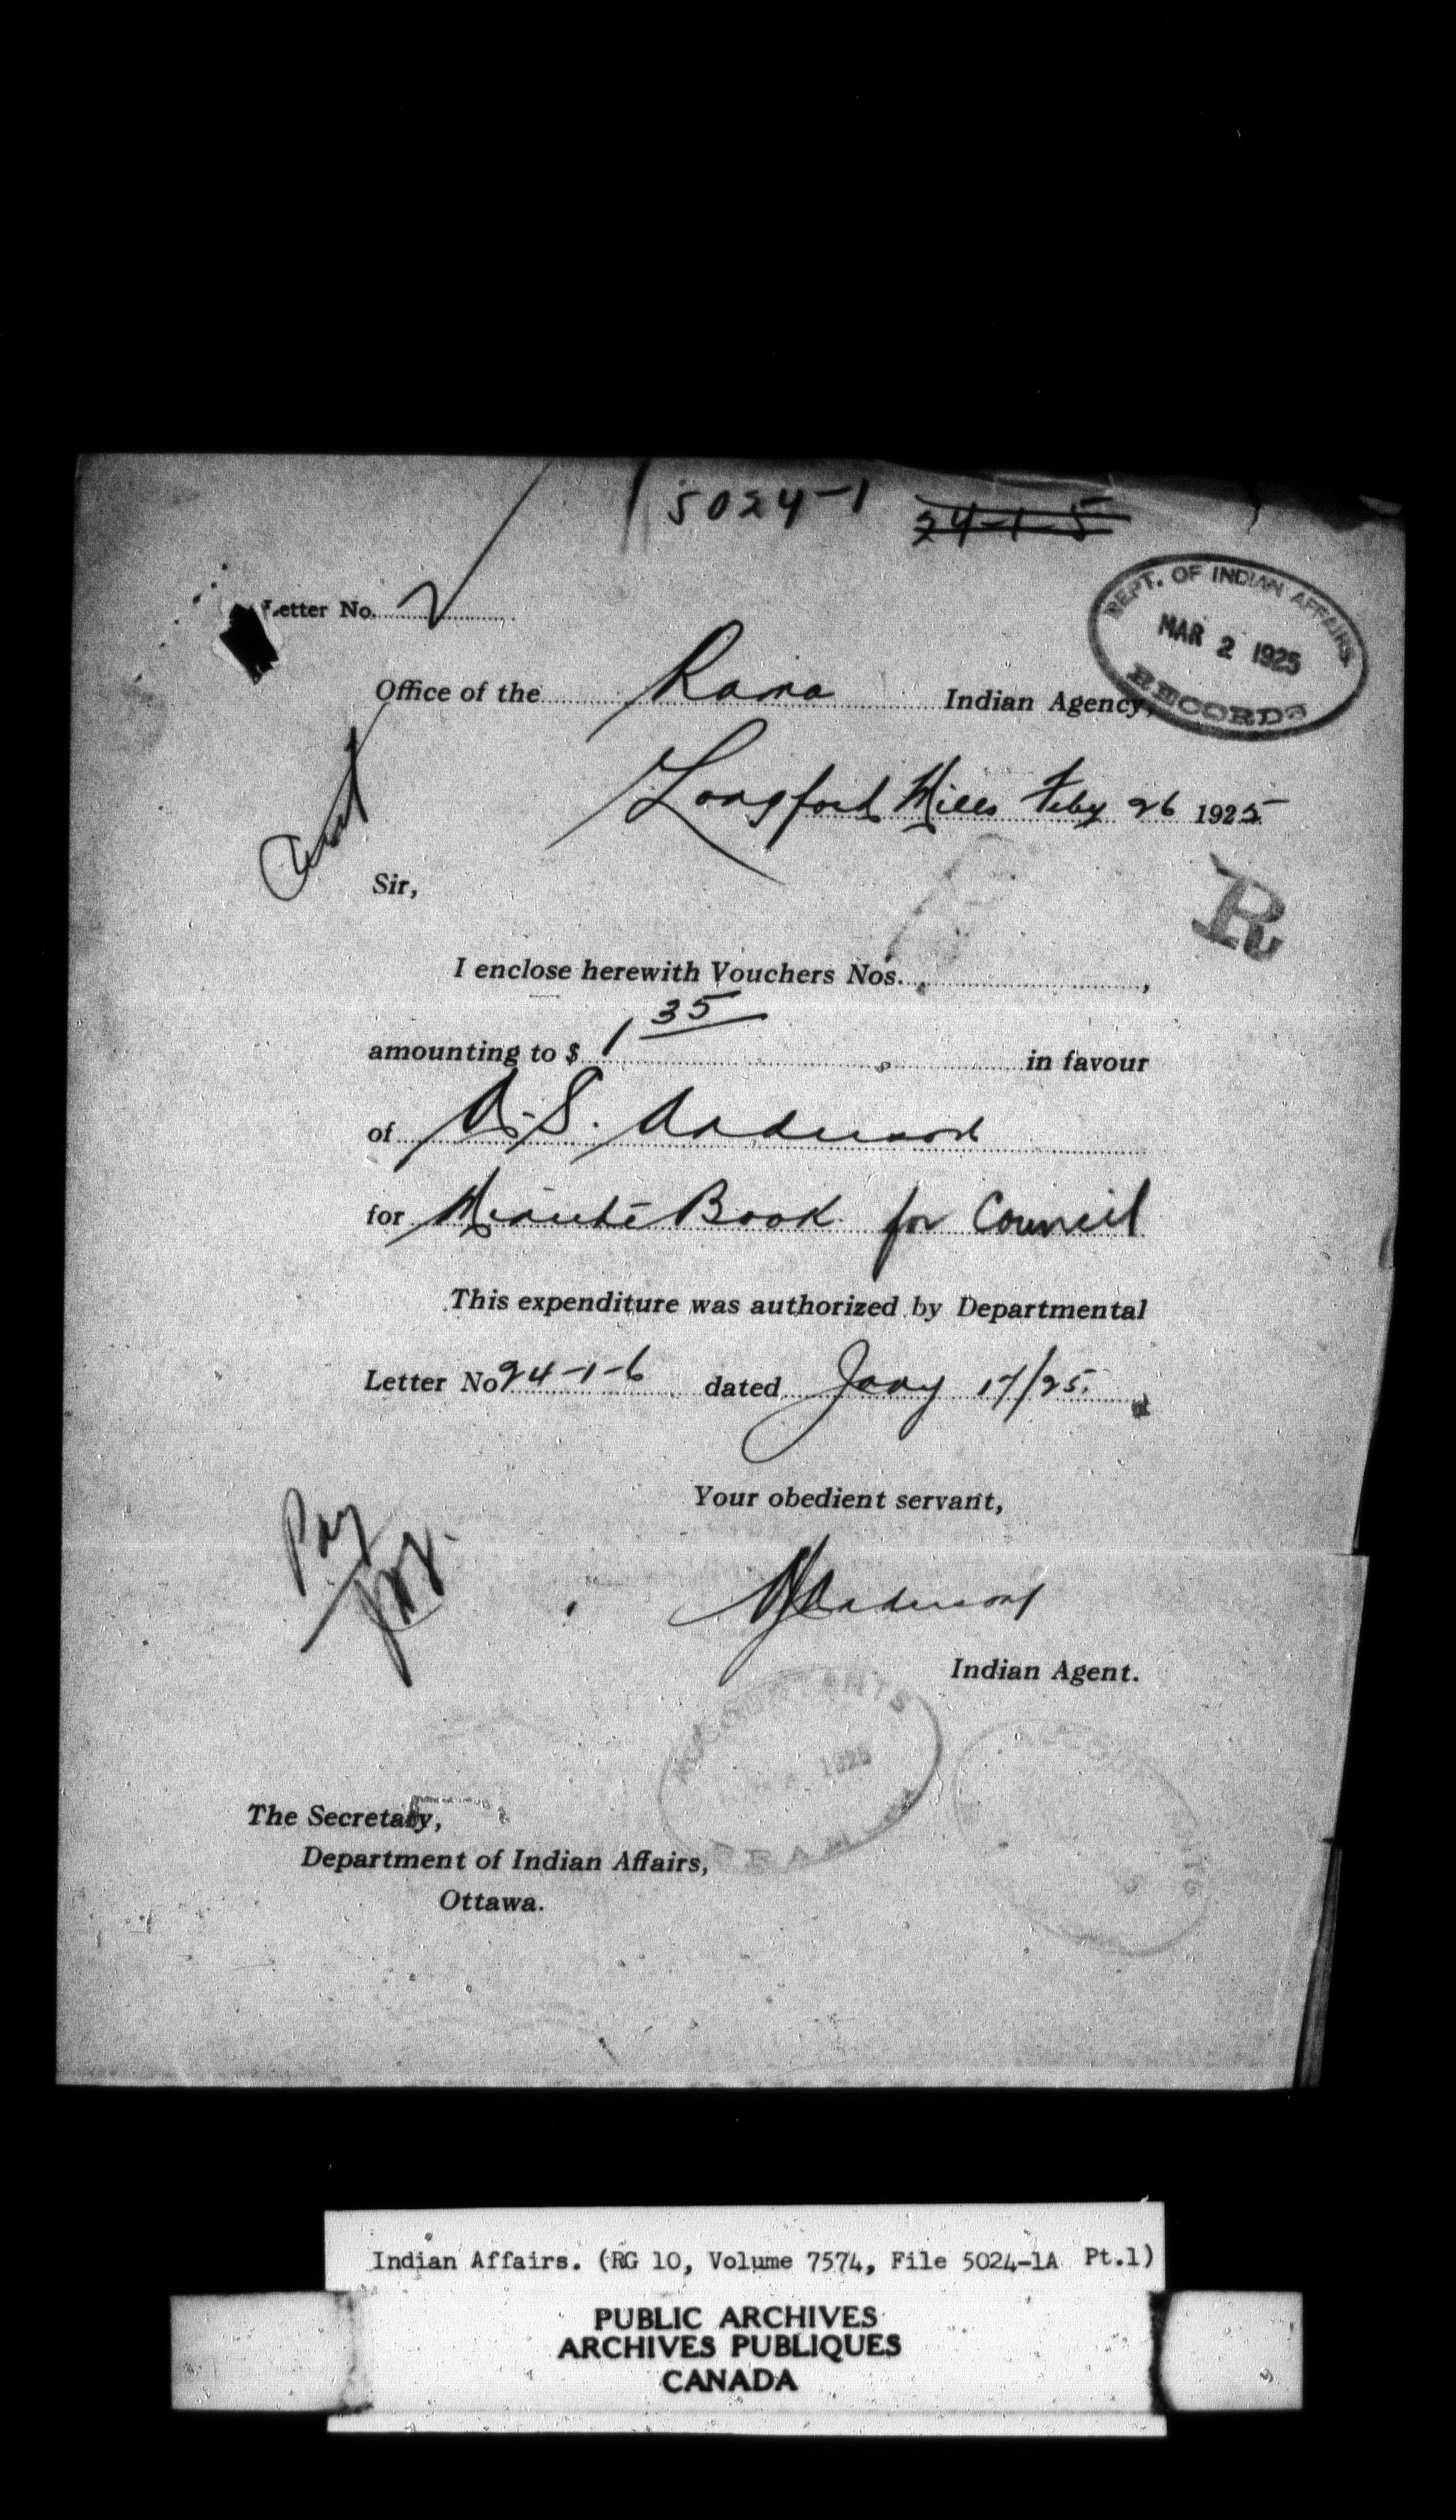 5024-1 24-1-5
Letter No.
DEPT. OF INDIAN AFFAIRS
MAR 2 1925
RECORDS
Office of the Rama Indian Agency,
Longford Mills Feby 26 1925
Sir,
R
I enclose herewith Vouchers Nos. ,
amounting to $ 1 35 in favour
of A.S. Anderson
for Minute Book for Council
This expenditure was authorized by Departmental
Letter No 24-1-6 dated Jany 17/25.
Your obedient servant,
Pay
Anderson
Indian Agent.
ACCOUNTANTS
1925
The Secretary,
Department of Indian Affairs,
Ottawa.
Indian Affairs. (RG 10, Volume 7574, File 5024-1A Pt.1)
PUBLIC ARCHIVES
ARCHIVES PUBLIQUES
CANADA